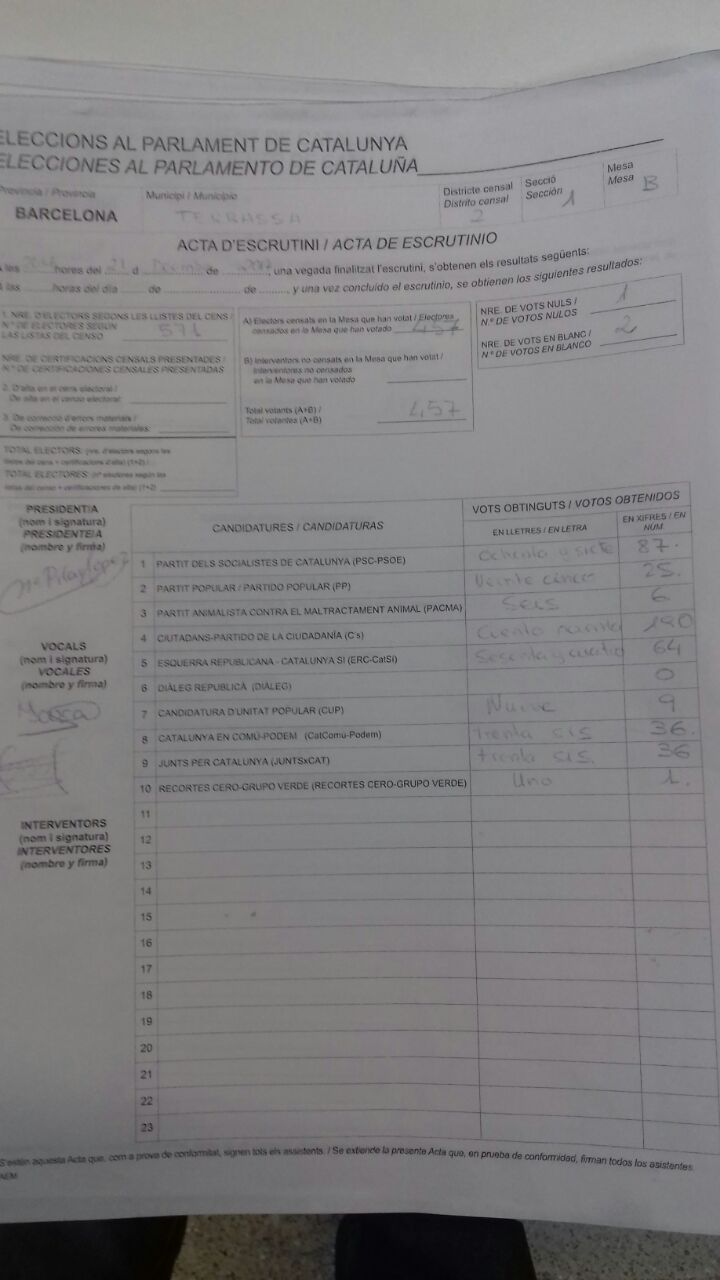 ELECCIONS AL PARLAMENT DE CATALUNYA
ELECCIONES AL PARLAMENTO DE CATALUÑA
Província / Provincia
BARCELONA
Municipi / Municipio
TERRASSA
Districte censal
Distrito censal
2
Secció
Sección
1
Mesa
Mesa
B
ACTA D'ESCRUTINI / ACTA DE ESCRUTINIO
A les hores del 21 d de 2017, una vegada finalitzat l'escrutini, s'obtenen els resultats següents:
A las ........horas del día ........ de ........ de ........, y una vez concluido el escrutinio, se obtienen los siguientes resultados:
1. NRE. D'ELECTORS SEGONS LES LLISTES DEL CENS /
N.º DE ELECTORES SEGÚN
LAS LISTAS DEL CENSO 571
NRE. DE CERTIFICACIONS CENSALS PRESENTADES /
N.º DE CERTIFICACIONES CENSALES PRESENTADAS
2. D'alta en el cens electoral /
De alta en el censo electoral:
3. De correcció d'errors materials /
De corrección de errores materiales:
TOTAL ELECTORS: (nre. d'electors segons les
llistes del cens + certificacions d'alta) (1+2) /
TOTAL ELECTORES: (nº electores según las
listas del censo + certificaciones de alta) (1+2)
A) Electors censats en la Mesa que han votat / Electores
censados en la Mesa que han votado 457
B) Interventors no censats en la Mesa que han votat /
Interventores no censados
en la Mesa que han votado
Total votants (A+B) /
Total votantes (A+B)
457
NRE. DE VOTS NULS /
N.º DE VOTOS NULOS
1
NRE. DE VOTS EN BLANC /
N.º DE VOTOS EN BLANCO
2
PRESIDENT/A
(nom i signatura)
PRESIDENTE/A
(nombre y firma)
Mª Pilar López
VOCALS
(nom i signatura)
VOCALES
(nombre y firma)
INTERVENTORS
(nom i signatura)
INTERVENTORES
(nombre y firma)
CANDIDATURES / CANDIDATURAS
VOTS OBTINGUTS / VOTOS OBTENIDOS
EN LLETRES / EN LETRA
EN XIFRES / EN NUM.
1 PARTIT DELS SOCIALISTES DE CATALUNYA (PSC-PSOE) ochenta y siete 87.
2 PARTIT POPULAR / PARTIDO POPULAR (PP) Veinte cinco 25.
3 PARTIT ANIMALISTA CONTRA EL MALTRACTAMENT ANIMAL (PACMA) Seis 6
4 CIUTADANS-PARTIDO DE LA CIUDADANÍA (C's) Ciento 190
5 ESQUERRA REPUBLICANA - CATALUNYA SÍ (ERC-CatSí) Sesenta y cuatro 64
6 DIÀLEG REPUBLICÀ (DIÀLEG) 0
7 CANDIDATURA D'UNITAT POPULAR (CUP) Nueve 9
8 CATALUNYA EN COMÚ-PODEM (CatComú-Podem) trenta sis 36.
9 JUNTS PER CATALUNYA (JUNTSxCAT) trenta sis. 36
10 RECORTES CERO-GRUPO VERDE (RECORTES CERO-GRUPO VERDE) Uno 1.
11
12
13
14
15
16
17
18
19
20
21
22
23
S'estén aquesta Acta que, com a prova de conformitat, signen tots els assistents. / Se extiende la presente Acta que, en prueba de conformidad, firman todos los asistentes.